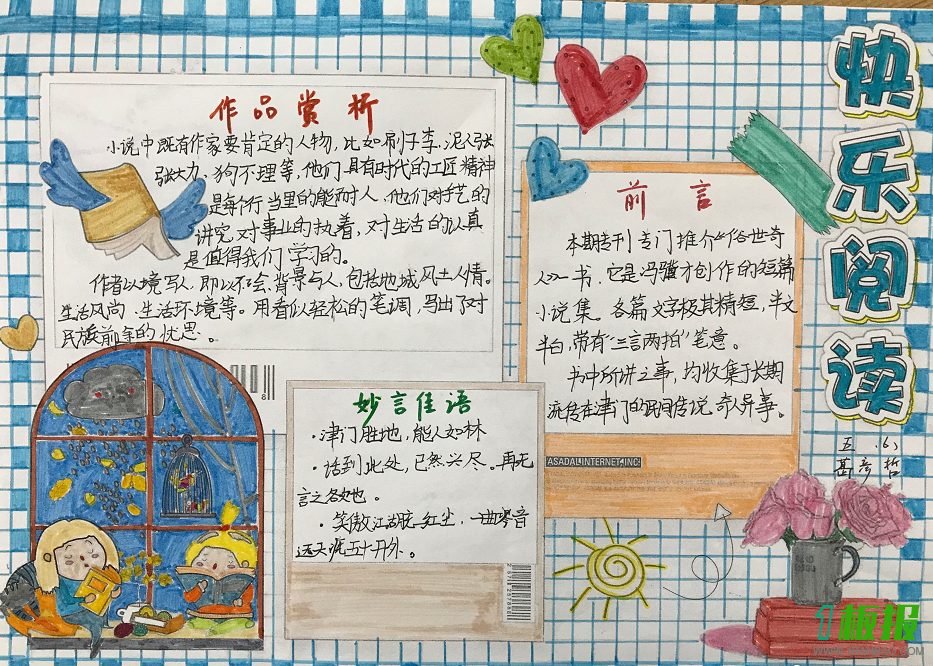 快乐阅读
五.(6)
作品赏析
小说中既有作家要肯定的人物,比如刷子李、泥人张
张大力、狗不理等,他们具有时代的工匠精神
是每个行当里的能耐人,他们对手艺的
讲究对事业的执着,对生活的认真
是值得我们学习的。
作者以境写人,即以不会,背景与人,包括地域风土人情。
生活风尚、生活环境等。用看似轻松的笔调,写出了对
民族前年的忧思。
前言
本期专刊专门推介《俗世奇
人》一书。它是冯骥才创作的短篇
小说集。各篇文字极其精短,半文
半白,带有“三言两拍”笔意。
书中所讲之事,均收集于长期
流传在津门的民间传说奇人异事。
ASADAL INTERNET, INC!
妙言佳语
·津门胜地,能人如林
·话到此处,已然兴尽。再无
言之
·笑傲江湖 红尘,一曲琴音
1板报